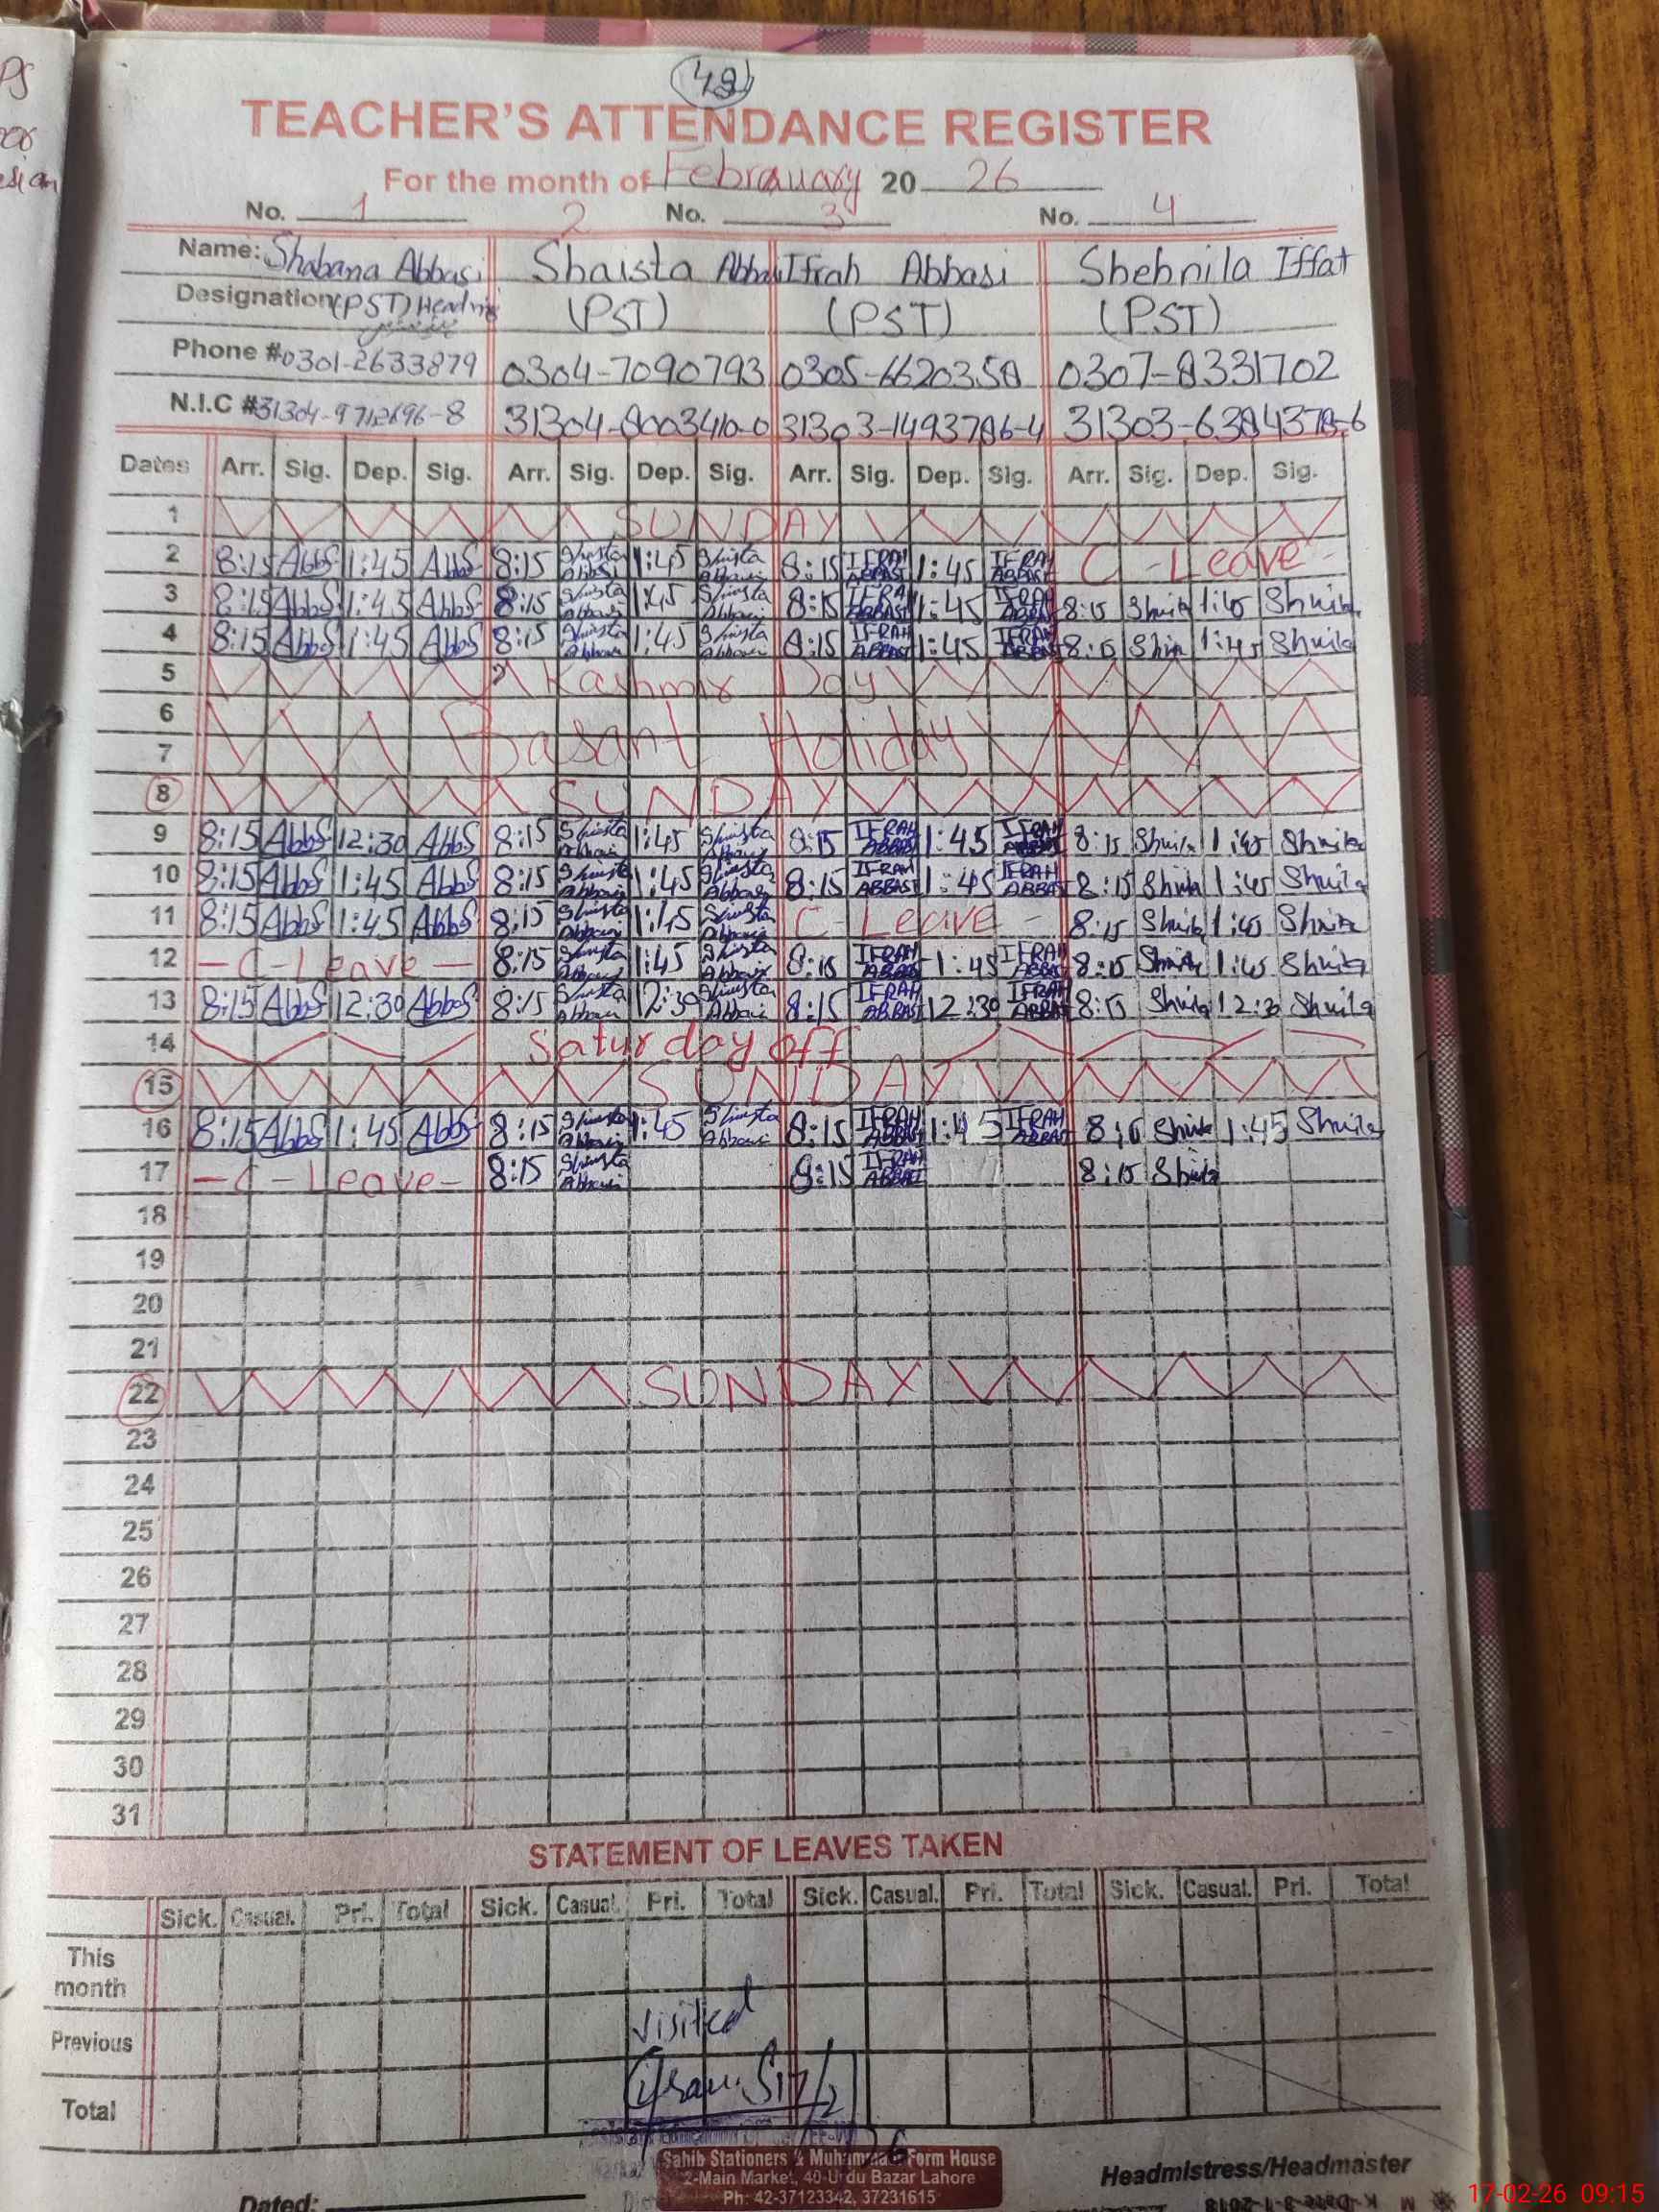 PS
48
TEACHER'S ATTENDANCE REGISTER
For the month of Febrauary 20 26
No. 1 2 No. 3 No. 4
Name: Shabana Abbasi Shaista Abbasi Ifrah Abbasi Shehnila Iffat
Designation (PST) Head (PST) (PST) (PST)
Phone # 0301-2633879 0304-7090793 0305-6620358 0307-8331702
N.I.C # 31304-9712696-8 31304-8003410-0 31303-1493786-4
Dates Arr. Sig. Dep. Sig. Arr. Sig. Dep. Sig. Arr. Sig. Dep. Sig. Arr. Sig. Dep. Sig.
1 SUNDAY
2 8:15 AbbS 1:45 AbbS 8:15 Shaista Abbasi 1:45 Shaista Abbasi 8:15 IFRAH ABBASI 1:45 IFRAH ABBASI C-Leave-
3 8:15 AbbS 1:45 AbbS 8:15 Shaista Abbasi 1:45 Shaista Abbasi 8:15 IFRAH ABBASI 1:45 IFRAH ABBASI 8:15 Shnila 1:45 Shnila
4 8:15 AbbS 1:45 AbbS 8:15 Shaista Abbasi 1:45 Shaista Abbasi 8:15 IFRAH ABBASI 1:45 IFRAH ABBASI 8:15 Shnila 1:45 Shnila
5 Kashmir Day
6
Basant Holiday
7
8 SUNDAY
9 8:15 AbbS 12:30 AbbS 8:15 Shaista Abbasi 1:45 Shaista Abbasi 8:15 IFRAH ABBASI 1:45 IFRAH ABBASI 8:15 Shnila 1:45 Shnila
10 8:15 AbbS 1:45 AbbS 8:15 Shaista Abbasi 1:45 Shaista Abbasi 8:15 IFRAH ABBASI 1:45 IFRAH ABBASI 8:15 Shnila 1:45 Shnila
11 8:15 AbbS 1:45 AbbS 8:15 Shaista Abbasi 1:45 Shaista Abbasi C-Leave- 8:15 Shnila 1:45 Shnila
12 -C-Leave- 8:15 Shaista Abbasi 1:45 Shaista Abbasi 8:15 IFRAH ABBASI 1:45 IFRAH ABBASI 8:15 Shnila 1:45 Shnila
13 8:15 AbbS 12:30 AbbS 8:15 Shaista Abbasi 12:30 Shaista Abbasi 8:15 IFRAH ABBASI 12:30 IFRAH ABBASI 8:15 Shnila 12:30 Shnila
14 Saturday off
15 SUNDAY
16 8:15 AbbS 1:45 AbbS 8:15 Shaista Abbasi 1:45 Shaista Abbasi 8:15 IFRAH ABBASI 1:45 IFRAH ABBASI 8:15 Shnila 1:45 Shnila
17 -C-Leave- 8:15 Shaista Abbasi 8:15 IFRAH ABBASI 8:15 Shnila
18
19
20
21
22 SUNDAY
23
24
25
26
27
28
29
30
31
STATEMENT OF LEAVES TAKEN
Sick. Casual. Pri. Total Sick. Casual. Pri. Total Sick. Casual. Pri. Total Sick. Casual. Pri. Total
This month
Previous
Total
visited
17/2
26
Sahib Stationers & Muhammad Form House
2-Main Market, 40-Urdu Bazar Lahore
Ph: 42-37123342, 37231615
Headmistress/Headmaster
Dated:
17-02-26 09:15